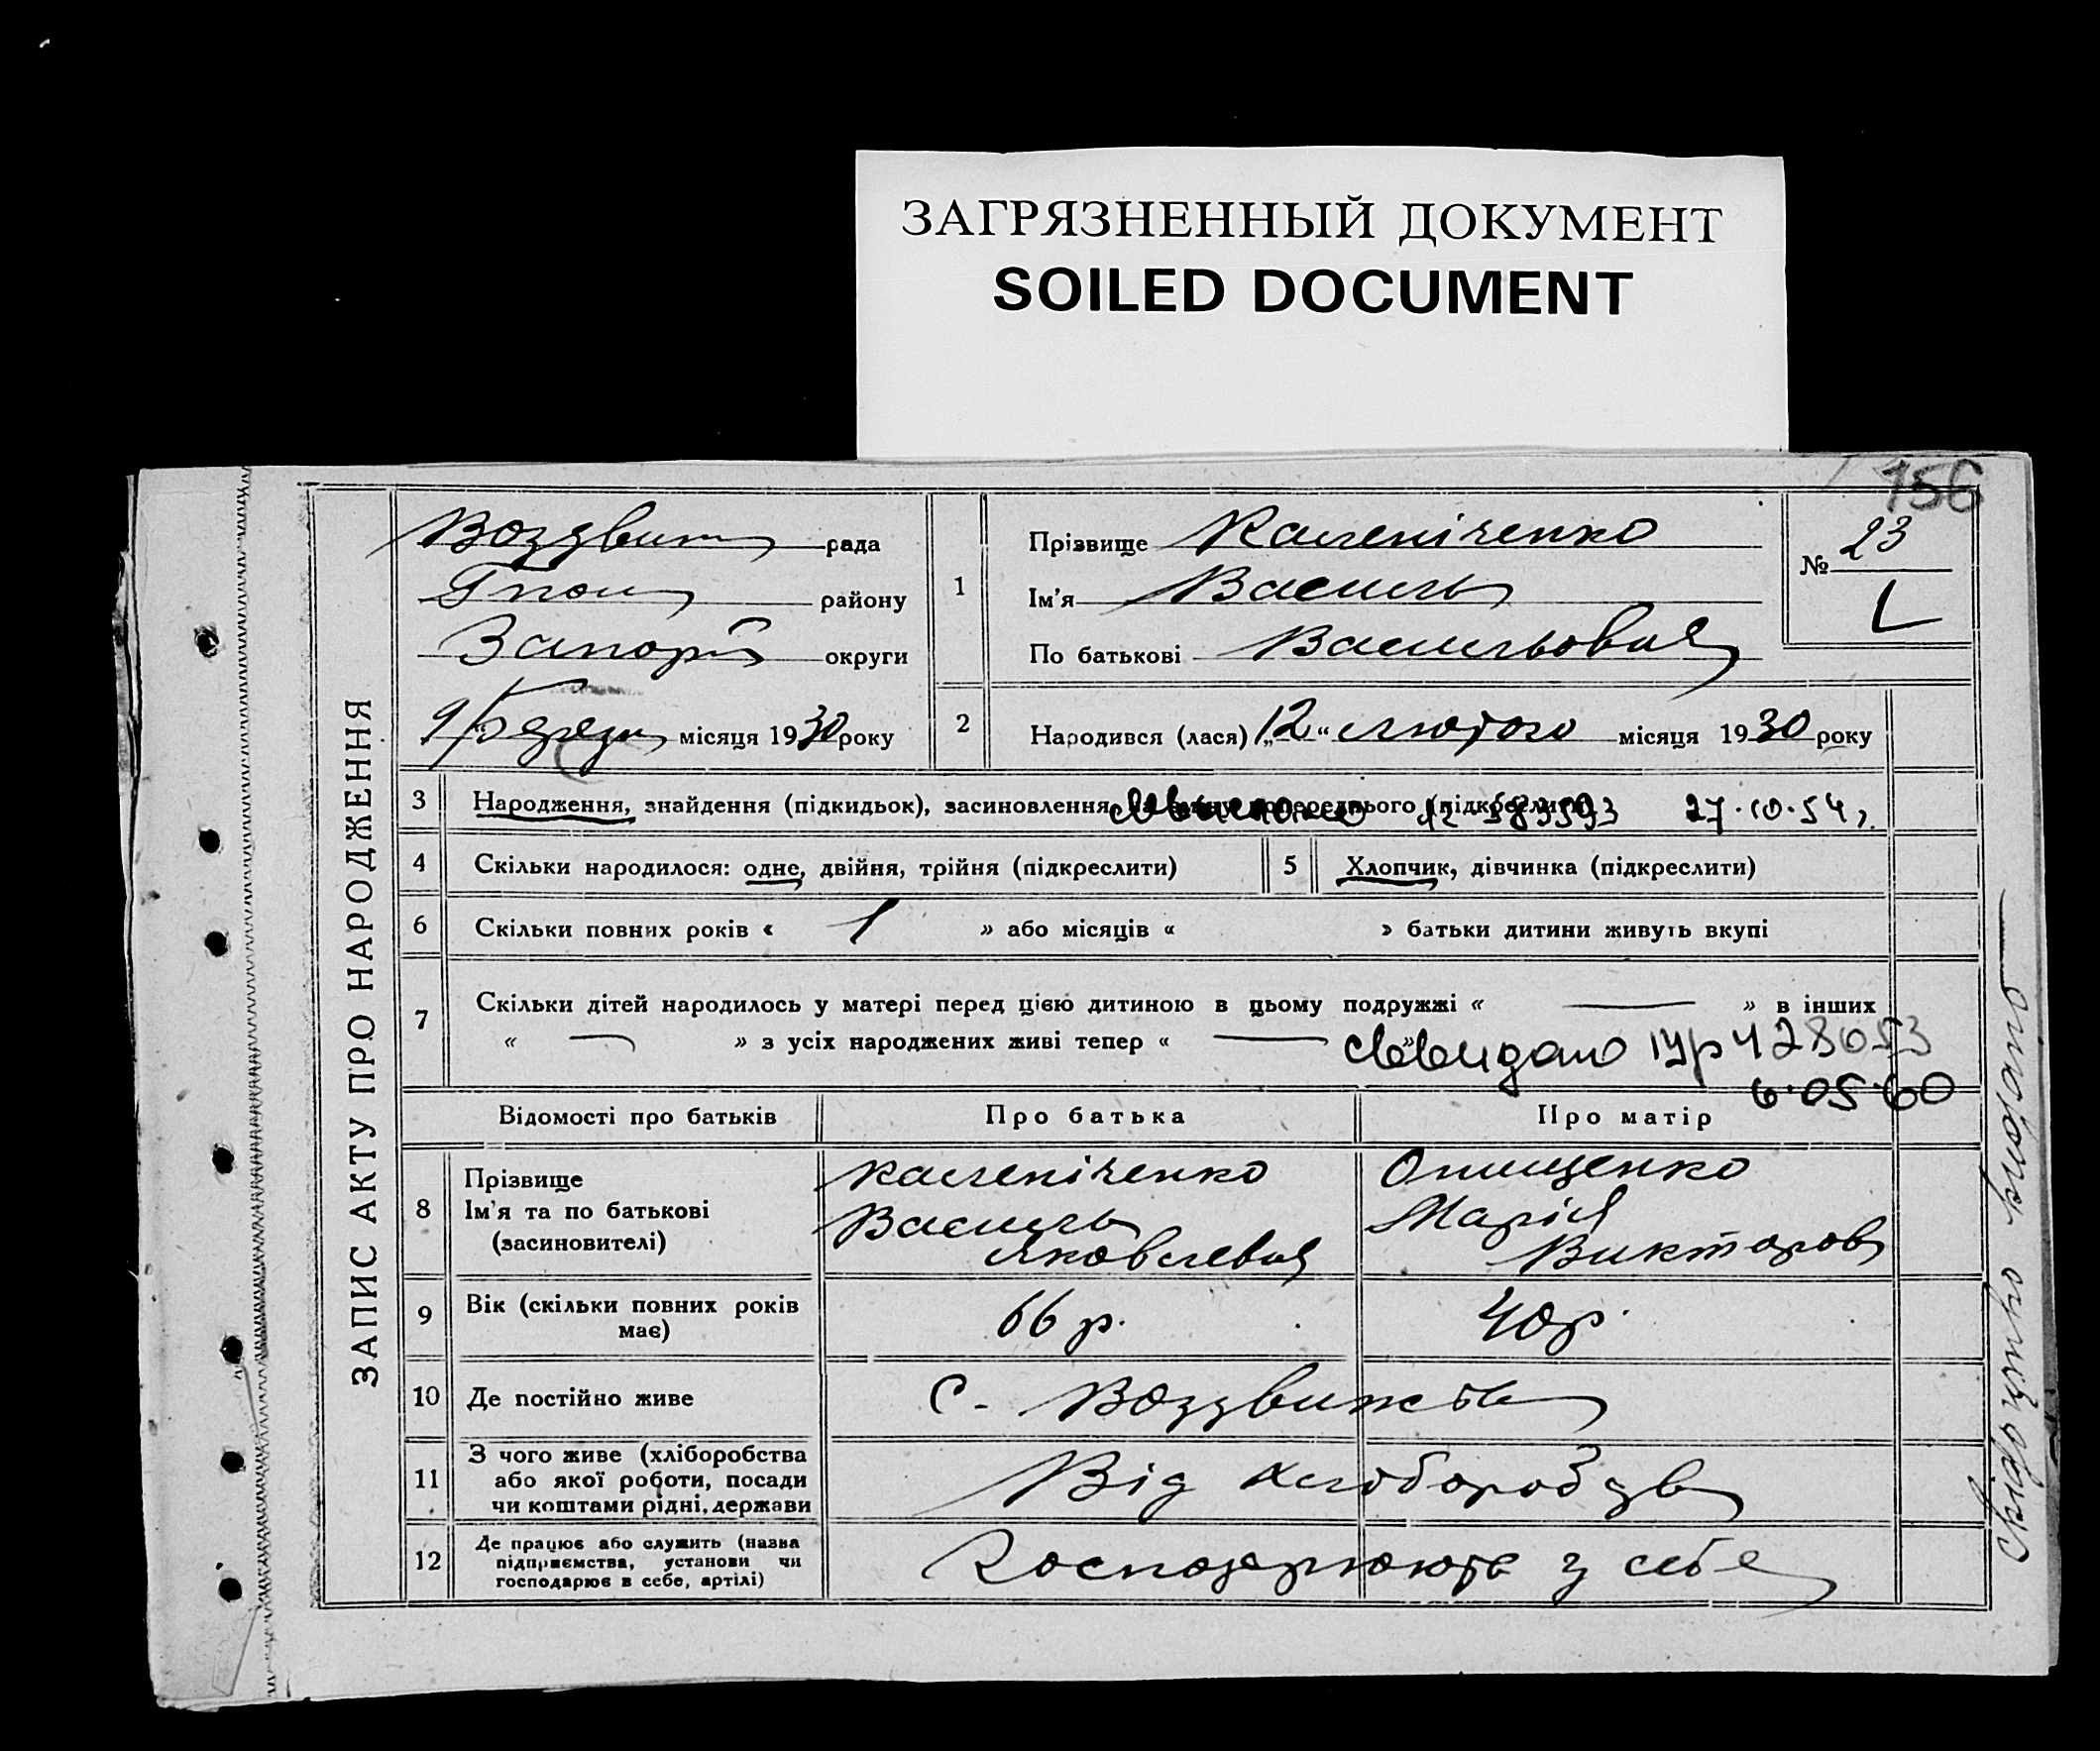 ЗАГРЯЗНЕННЫЙ ДОКУМЕНТ
SOILED DOCUMENT
156
ЗАПИС АКТУ ПРО НАРОДЖЕННЯ
Воздвиж рада
району
Запоріз округи
місяця 1930 року
1
Прізвище Каленіченко
Ім'я Василь
По батькові Васильович
№ 23
2
Народився (лася) „12“ лютого місяця 1930 року
3 Народження, знайдення (підкидьок), засиновлення 27.10.54
4 Скільки народилося: одне, двійня, трійня (підкреслити)
5 Хлопчик, дівчинка (підкреслити)
6 Скільки повних років « 1 » або місяців « » батьки дитини живуть вкупі
7 Скільки дітей народилось у матері перед цією дитиною в цьому подружжі « — » в інших
« — » з усіх народжених живі тепер « —
видано 428053
6.05.60
Відомості про батьків Про батька Про матір
8 Прізвище
Ім'я та по батькові
(засиновителі)
Каленіченко
Василь
Яковлевич
Онищенко
Марія
Викторов
9 Вік (скільки повних років
має)
66 р. 40 р.
10 Де постійно живе с. Воздвижівка
11 З чого живе (хліборобства
або якої роботи, посади
чи коштами рідні, держави
Від хліборобства
12 Де працює або служить (назва
підприємства, установи чи
господарює в себе, артілі)
Господарюють у себе